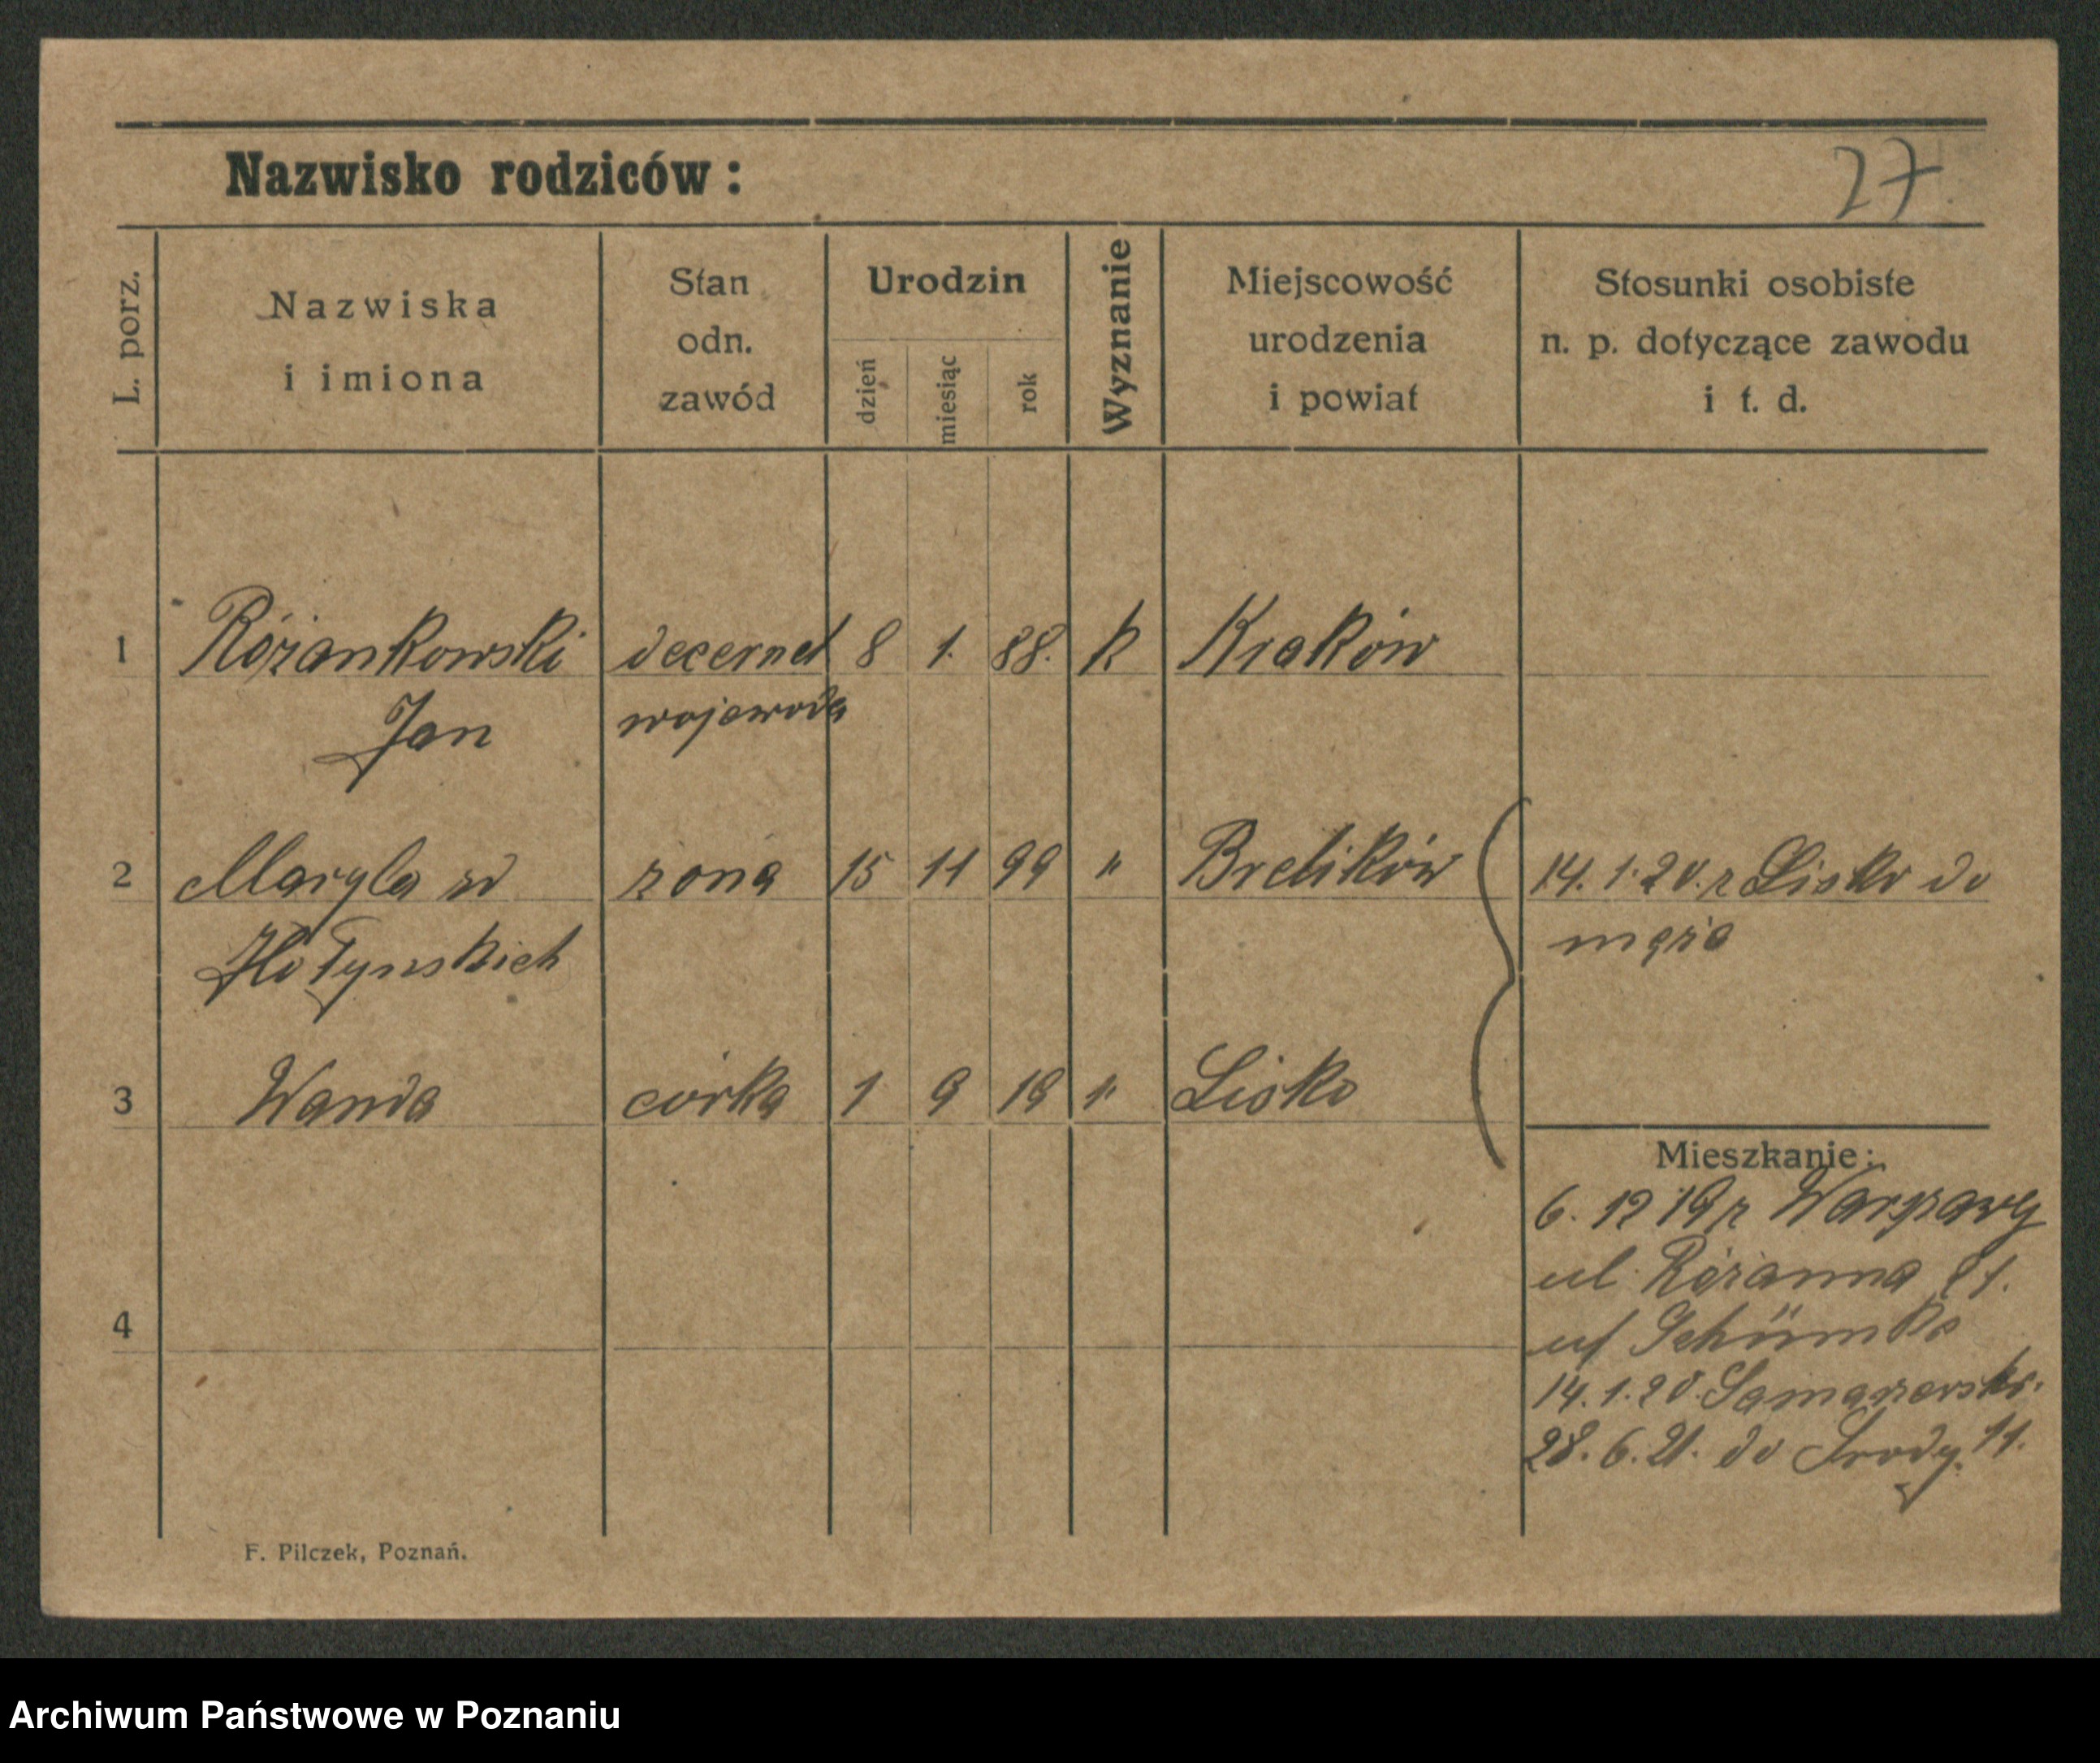 Nazwisko rodziców:
27.
L. porz.
Nazwiska
i imiona
Stan
odn.
zawód
Urodzin
dzień
miesiąc
rok
Wyznanie
Miejscowość
urodzenia
i powiat
Stosunki osobiste
n. p. dotyczące zawodu
i t. d.
1 Różankowski decernet 8 1. 88. k Kraków
Jan wojewoda
2 Maryla zona 15 11 99 " Brelików 14. 1. 20. z Lisko do
Hołynskich męża
3 Wanda córka 1 9 19 " Lisko
Mieszkanie:
6. 12 19 z Warszawy
ul. Różanna
u/
14. 1. 20.
4
28. 6. 21. do Środy. 11.
F. Pilczek, Poznań.
Archiwum Państwowe w Poznaniu